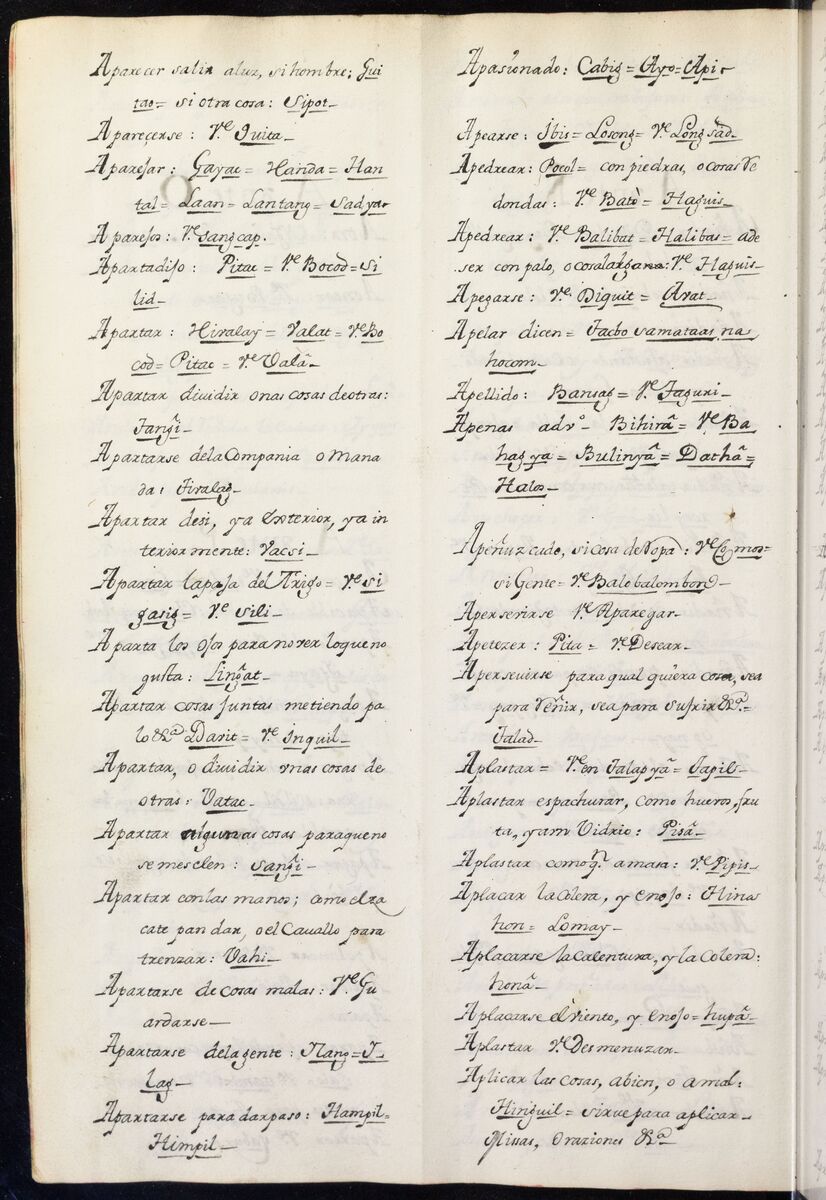 Aparecer salir aluz, si hombre; Gui
tao= si otra cosa: Sipot_
Apareçerse: V.e Quita_
Aparejar: Gayac= Handa= Han
tal= Laan= Lantang= Sadya_
Aparejos: V.e Sangcap.
Apartadijo: Pitac= V.e Bocod= Si
lid_
Apartar: Hiralay= Valat= V.e Bo
cod= Pitac= V.e Valâ_
Apartar dividir onas cosas deotras:
Tangî_
Apartarse dela Compania o Mana
da: Tiralag_
Apartar desi, ya exterior, ya in
teriormente: Vacsi_
Apartar lapaja del Trigo= V.e Si
gasig= V.e Sili_
Aparta los ojos para no ver loqueno
gusta: Lingat_
Apartar cosas juntas metiendo pa
lo &.a Darit= V.e Inguil_
Apartar, o dividir vnas cosas de
otras: Vatac_
Apartar algunas cosas paraqueno
semesclen: Sangî_
Apartar conlas manos; como elza
cate pan dar, o el Cavallo para
trenzar: Vahi_
Apartarse de cosas malas: V.e Gu
ardarse_
Apartarse dela gente: Ilang= I_
lag_
Apartarse para dar paso: Hampil=
Himpil_
Apasionado: Cabig= Ayo= Api_
Apearse: Ibis= Losong= V.e Longsad_
Apedrear: Pocol= con piedras, o cosas Re
dondas: V.e Bató= Haguis_
Apedrear: V.e Balibat= Halibas= ade
ser con palo, o cosa larga na: V.e Haguis_
Apegarse: V.e Diquit= Avat_
Apelar dicen= Tacbo sa mataas na
hocom_
Apellido: Bansag= V.e Taguri_
Apenas adv.o_ Bihirâ= V.e Ba
hagya= Bulinyâ= Dathâ=
Halos_
Apeñuzcado, si cosa de Ropa: V.e Comos=
si Gente= V.e Balobalombon_
Aperserirse V.e Aparegar_
Apetezer: Pita= V.e Desear_
Apersevirse para qual quiera cosa, sea
para Reñir, sea para sufrir &.a=
Talad_
Aplastar= V.e en Talapyâ= Tapil_
Aplastar espachurrar, como huevos, fru
ta, yam Vidrio: Pisâ_
Aplastar como q.n amasa: V.e Pipis_
Aplacar la colera, y enojo: Hina
hon= Lomay_
Aplacarse la calentura, y la Colera:
honâ_
Aplacarse el viento, y enojo= hupâ_
Aplastar V.e Desmenuzar_
Aplicar las cosas, a bien, o a mal:
Hinguil= sirve para aplicar_
Missas, Oraziones &.a